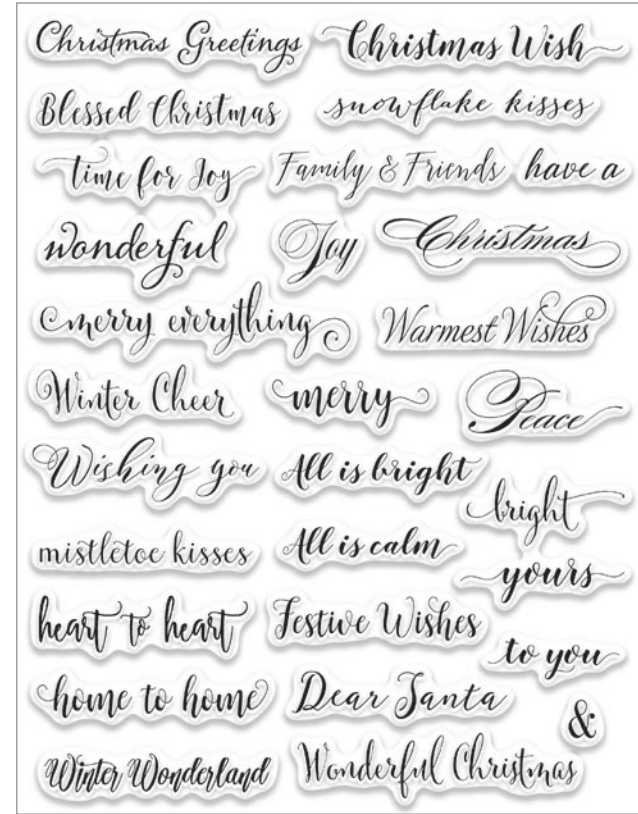 Christmas Greetings
Christmas Wish
Blessed Christmas
snowflake kisses
time for Joy
Family & Friends
have a
wonderful
Joy
Christmas
merry everything
Warmest Wishes
Winter Cheer
merry
Peace
Wishing you
All is bright
bright
mistletoe kisses
All is calm
yours
heart to heart
Festive Wishes
to you
home to home
Dear Santa
&
Winter Wonderland
Wonderful Christmas